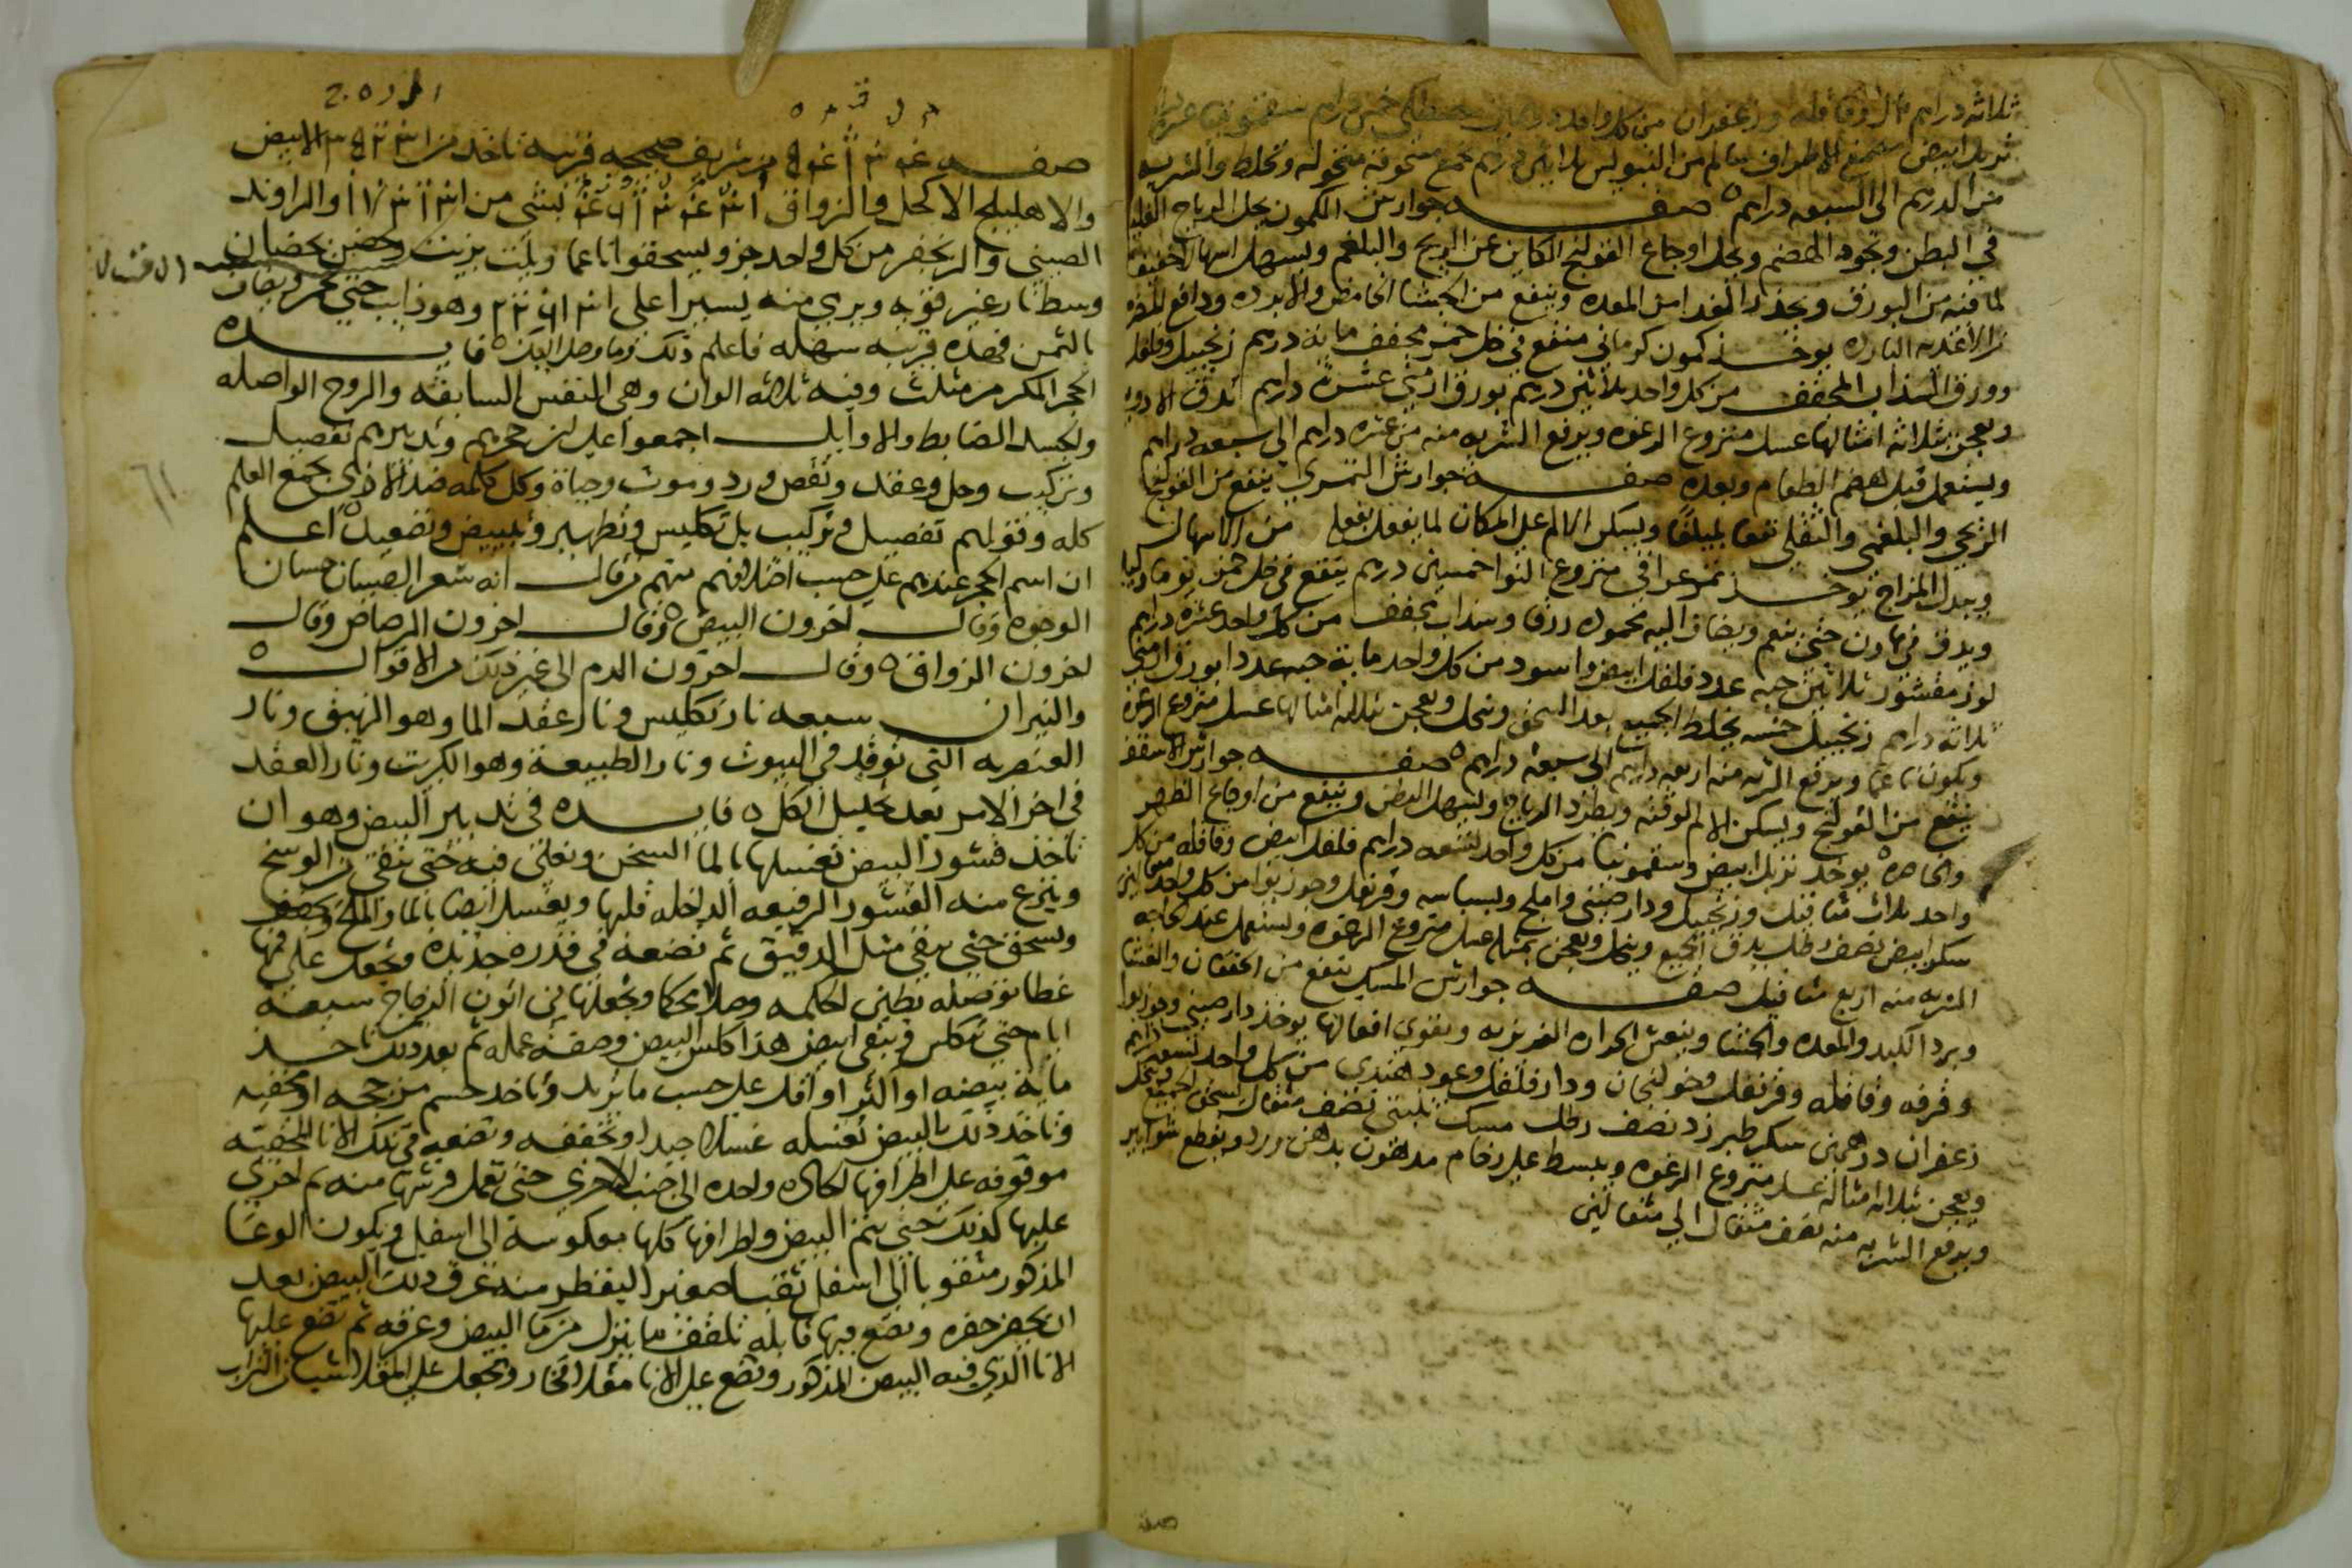 ثلاثه دراهم وقاقله وزعفران من كل واحد درهمين مصطكى خمس دراهم سقمونيا عشره
تربد ابيض مصمغ الاطراف سالم من السوس ثلاثين درهم تجمع مسحوقه منخوله وتخلط والشربه
من الدرهم الى السبعه دراهم ه صفه جوارش الكمون يحل الرياح الغليظه
في البطن وتجود الهضم ويحل اوجاع القولنج الكاين عن الريح والبلغم ويسهل اسهالا خفيفا
لما فيه من البورق ويحدر الغدا من المعده وينفع من الجشا الحامض والابرده ودافع لمضره
الاغذيه البارده يوخذ كمون كرماني منقع في خل خمر مجفف مايه درهم زنجبيل وفلفل
وورق السذاب المجفف من كل واحد ثلاثين درهم بورق ارمني عشرة دراهم تدق الادويه
ويعجن بثلاثه امثالها عسل منزوع الرغوه ويرفع الشربه منه من عشره دراهم الى سبعه دراهم
ويستعمل قبل هضم الطعام وبعده صفه جوارش التمري ينفع من القولنج
الريحي والبلغمي والثفلي نفعا بليغا ويسكن الالم على المكان لما يفعل بفعله من الاسهال
ويبدل المزاج يوخذ تمر عراقي منزوع النوا خمسين درهم ينقع في خل خمر يوما وليله
ويدق في هاون حتى ينعم ويضاف اليه وسذاب مجفف من كل واحد عشره دراهم
لوز مقشور ثلاثين حبه عدد فلفل ابيض واسود من كل واحد مايه حبه عددا بورق ارمني
ثلاثه دراهم زنجبيل خمسه يخلط الجميع بعد السحق وينخل ويعجن بثلاثه امثالها عسل منزوع الرغوه
ويكون ناعما ويرفع الشربه منه اربعه دراهم الى سبعه دراهم ه صفه جوارش الاسقف
ينفع من القولنج ويسكن الالم لوقته ويطرد الرياح ويسهل البطن وينفع من اوجاع الظهر
والخاصره يوخذ تربد ابيض وسقمونيا من كل واحد تسعه دراهم فلفل ابيض وقاقله من كل
واحد ثلاث مثاقيل وزنجبيل ودارصيني واملج وبسباسه وقرنفل وجوز بوا من كل واحد مثقالين
سكر ابيض نصف رطل يدق الجميع وينخل ويعجن بمثله عسل منزوع الرغوه ويستعمل عند الحاجه
الشربه منه اربع مثاقيل صفه جوارش المسك ينفع من الخفقان والغشا
وبرد الكبد والمعده والحشا وينعش الحراره الغريزيه ويقوي افعالها يوخذ دارصيني وجوزبوا
وقرفه وقاقله وقرنفل وخولنجان ودارفلفل وعود هندي من كل واحد تسعه دراهم
زعفران درهمين سكر طبرزد نصف رطل مسك تبتي نصف مثقال يسحق الجميع وينخل
ويعجن بثلاثه امثاله عسل منزوع الرغوه ويبسط على رخام مدهون بدهن ورد ويقطع شوابير
ويرفع الشربه منه نصف مثقال الى مثقالين
صفه
صفه شريف صحيحه قريبه تاخذ من الابيض
والاهليلج الاكحل والزواق بشي من والراوند
الصيني والزنجفر من كل واحد جزو ويسحقوا ناعما ويلت بزيت
وسط نار غير قويه ويرمي منه يسيرا على وهو ذايب حتى يحمر
بالثمن فهذه قريبه سهله فاعلم ذلك وما وصل اليك ه فايده
الحجر المكرم مثلث وفيه ثلاثه الوان وهي النفس السابقه والروح الواصله
والجسد الضابط والاوايل اجمعوا على ان حجرهم وتدبيرهم تفصيل
وتركيب وحل وعقد ونقص ورد وموت وحياة وكل كلمه ضد الاخرى يجمع العلم
كله وقولهم تفصيل وتركيب بل تكليس وتطهير وتبييض وتصعيد ه اعلم
ان اسم الحجر عندهم على حسب اختلافهم منهم من قال انه شعر الصبيان حسان
الوجوه وقال اخرون البيض ه وقال اخرون الرصاص وقال
اخرون الزواق ه وقال اخرون الدم الى غير ذلك من الاقوال ه
والنيران سبعه نار تكليس ونار عقد الما وهو الزيبق ونار
العنصريه التي توقد في البيوت ونار الطبيعة وهو الكبريت ونار العقد
في اخر الامر بعد تحليل الكل ه فايده في تدبير البيض وهو ان
تاخذ قشور البيض تغسلها بالما السخن وتغلى فيه حتى تنقى من الوسخ
وينزع منه القشور الرقيقه الداخله قلبها ويغسل ايضا بالما والملح ويجفف
ويسحق حتى يبقى مثل الدقيق ثم تضعه في قدره جديده وتجعل على فمها
غطا توصله بطين الحكمه وصلا محكما وتجعلها في اتون الزجاج سبعة
ايام حتى تكلس ويبقى ابيض هذا كلس البيض وصفة عمله ثم بعد ذلك تاخذ
ماية بيضه او اكثر او اقل على حسب ما تريد وتاخذ
وتاخذ ذلك البيض تغسله غسلا جيدا وتجففه وتضعه في تلك الانا
موقوفه على اطرافها الحاده واحده الى جنب الاخرى حتى تعمل فرشتها منه ثم اخرى
عليها كذلك حتى يتم البيض واطرافها كلها معكوسة الى اسفل ويكون الوعا
المذكور مثقوبا الى اسفل ثقبا صغيرا ليقطر منه عرق ذلك البيض بعد
ان يحفر حفره وتضع فيها قابله تلقف ما ينزل من ما البيض وعرقه ثم تضع عليها
الانا الذي فيه البيض المذكور وتضع على الانا مقلا فخار وتجعل على المقلا شيا من التراب